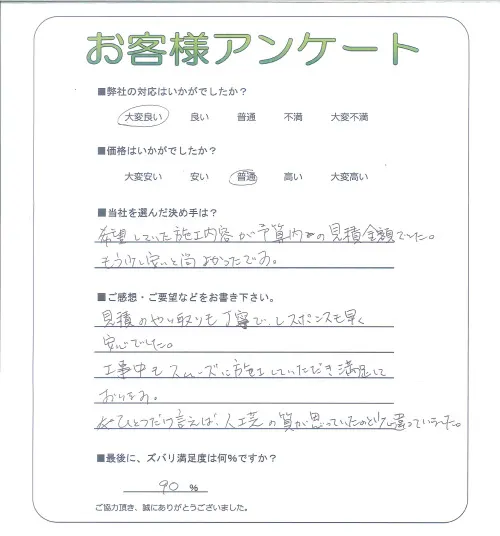 お客様アンケート
■弊社の対応はいかがでしたか?
大変良い 良い 普通 不満 大変不満
■価格はいかがでしたか?
大変安い 安い 普通 高い 大変高い
■当社を選んだ決め手は?
希望していた施工内容が予算内の見積金額でした。
もう少し安いと尚よかったです。
■ご感想・ご要望などをお書き下さい。
見積のやり取りも丁寧で、レスポンスも早く
安心でした。
工事中もスムーズに施工していただき満足して
おります。
ひとつだけ言えば、人工芝の質が思っていたのと少し違っていました。
■最後に、ズバリ満足度は何%ですか?
90 %
ご協力頂き、誠にありがとうございました。